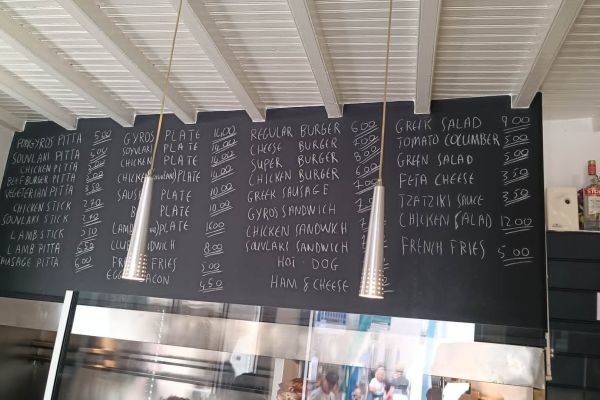 PORK GYROS PITTA 500
SOUVLAKI PITTA
CHICKEN PITTA
BEEF BURGER PITTA
VEGETERIAN PITTA 350
CHICKEN STICK
SOUVLAKI STICK
LAMB STICK
LAMB PITTA
SAUSAGE PITTA 600
GYROS PLATE 1400
SOUVLAKI PLATE
CHICKEN PLATE
CHICKEN PLATE
SAUSAGE PLATE 1000
PLATE 1000
LAMB PLATE 1600
CLUB SANDWICH 800
FRENCH FRIES 500
EGGS BACON 450
REGULAR BURGER 600
CHEESE BURGER
SUPER BURGER 800
CHICKEN BURGER
GREEK SAUSAGE
GYROS SANDWICH
CHICKEN SANDWICH
SOUVLAKI SANDWICH
HOT. DOG
HAM & CHEESE
GREEK SALAD 900
TOMATO COCUMBER 500
GREEN SALAD 500
FETA CHEESE 350
TZATZIKI SAUCE 350
CHICKEN SALAD 1200
FRENCH FRIES 500